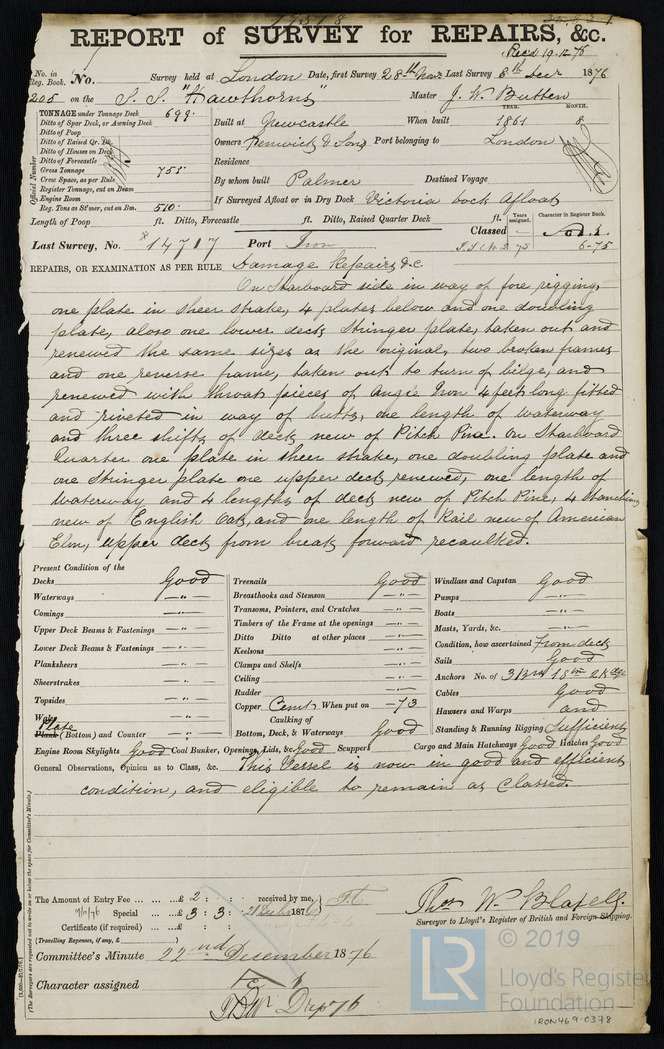 17318
REPORT of SURVEY for REPAIRS, &c.
Rec'd 19.12.76
No. in Reg. Book. No. Survey held at London Date, first Survey 28th Nov. Last Survey 8th Decr 1876
205 on the S.S. "Hawthorns" Master J. W. Butten
TONNAGE under Tonnage Deck 699.
Ditto of Spar Deck, or Awning Deck
Ditto of Poop
Ditto of Raised Qr. Dk.
Ditto of Houses on Deck
Ditto of Forecastle
Gross Tonnage 755
Crew Space, as per Rule
Register Tonnage, cut on Beam
Engine Room
Reg. Tons as St'mer, cut on Bm. 510.
Official Number
Built at Newcastle When built YEAR. 1861 MONTH. 8
Owners Fenwick & Sons Port belonging to London
Residence
By whom built Palmer Destined Voyage
If Surveyed Afloat or in Dry Dock Victoria Dock Afloat
Length of Poop ft. Ditto, Forecastle ft. Ditto, Raised Quarter Deck ft.
Years assigned. Character in Register Book.
Classed
Last Survey, No. 14717 Port Iron 6-75
REPAIRS, OR EXAMINATION AS PER RULE Damage Repairs &c.
On Starboard side in way of fore rigging,
one plate in sheer strake, 4 plates below and one doubling
plate, also one lower deck Stringer plate, taken out and
renewed the same sizes as the original, two broken frames
and one reverse frame, taken out to turn of bilge, and
renewed with throat pieces of Angle Iron 4 feet long fitted
and riveted in way of butts, one length of waterway
and three shifts of deck new of Pitch Pine. On Starboard
Quarter one plate in sheer strake, one doubling plate and
one Stringer plate one upper deck renewed, one length of
Waterway and 4 lengths of deck new of Pitch Pine, 4 Stanchions
new of English Oak, and one length of Rail new of American
Elm, upper deck from break forward recaulked.
Present Condition of the
Decks Good
Waterways "
Comings "
Upper Deck Beams & Fastenings "
Lower Deck Beams & Fastenings "
Planksheers "
Sheerstrakes "
Topsides "
Wales "
Plate
Plank (Bottom) and Counter "
Treenails Good
Breasthooks and Stemson "
Transoms, Pointers, and Crutches "
Timbers of the Frame at the openings "
Ditto Ditto at other places "
Keelsons "
Clamps and Shelfs "
Ceiling "
Rudder "
Copper Cemt When put on -73
Caulking of
Bottom, Deck, & Waterways Good
Windlass and Capstan Good
Pumps "
Boats "
Masts, Yards, &c. "
Condition, how ascertained From deck
Sails Good
Anchors No. of 3 Brs 1 Stm 2 Kdge
Cables Good
Hawsers and Warps and
Standing & Running Rigging Sufficient
Engine Room Skylights Good Coal Bunker, Openings, Lids, &c. Good Scuppers Cargo and Main Hatchways Good Hatches Good
General Observations, Opinion as to Class, &c. This Vessel is now in good and efficient
condition, and eligible to remain as Classed.
The Amount of Entry Fee £ 2 : : received by me,
Special £ 3 : 3 : 1876
Certificate (if required) £ : :
(Travelling Expenses, if any, £ )
Thos W. Blafell.
Surveyor to Lloyd's Register of British and Foreign Shipping.
Committee's Minute 22nd December 1876
Character assigned
(The Surveyors are requested not to write on or below the space for Committee's Minute.)
© 2019
LR
Lloyd's Register
Foundation
IRON469-0378